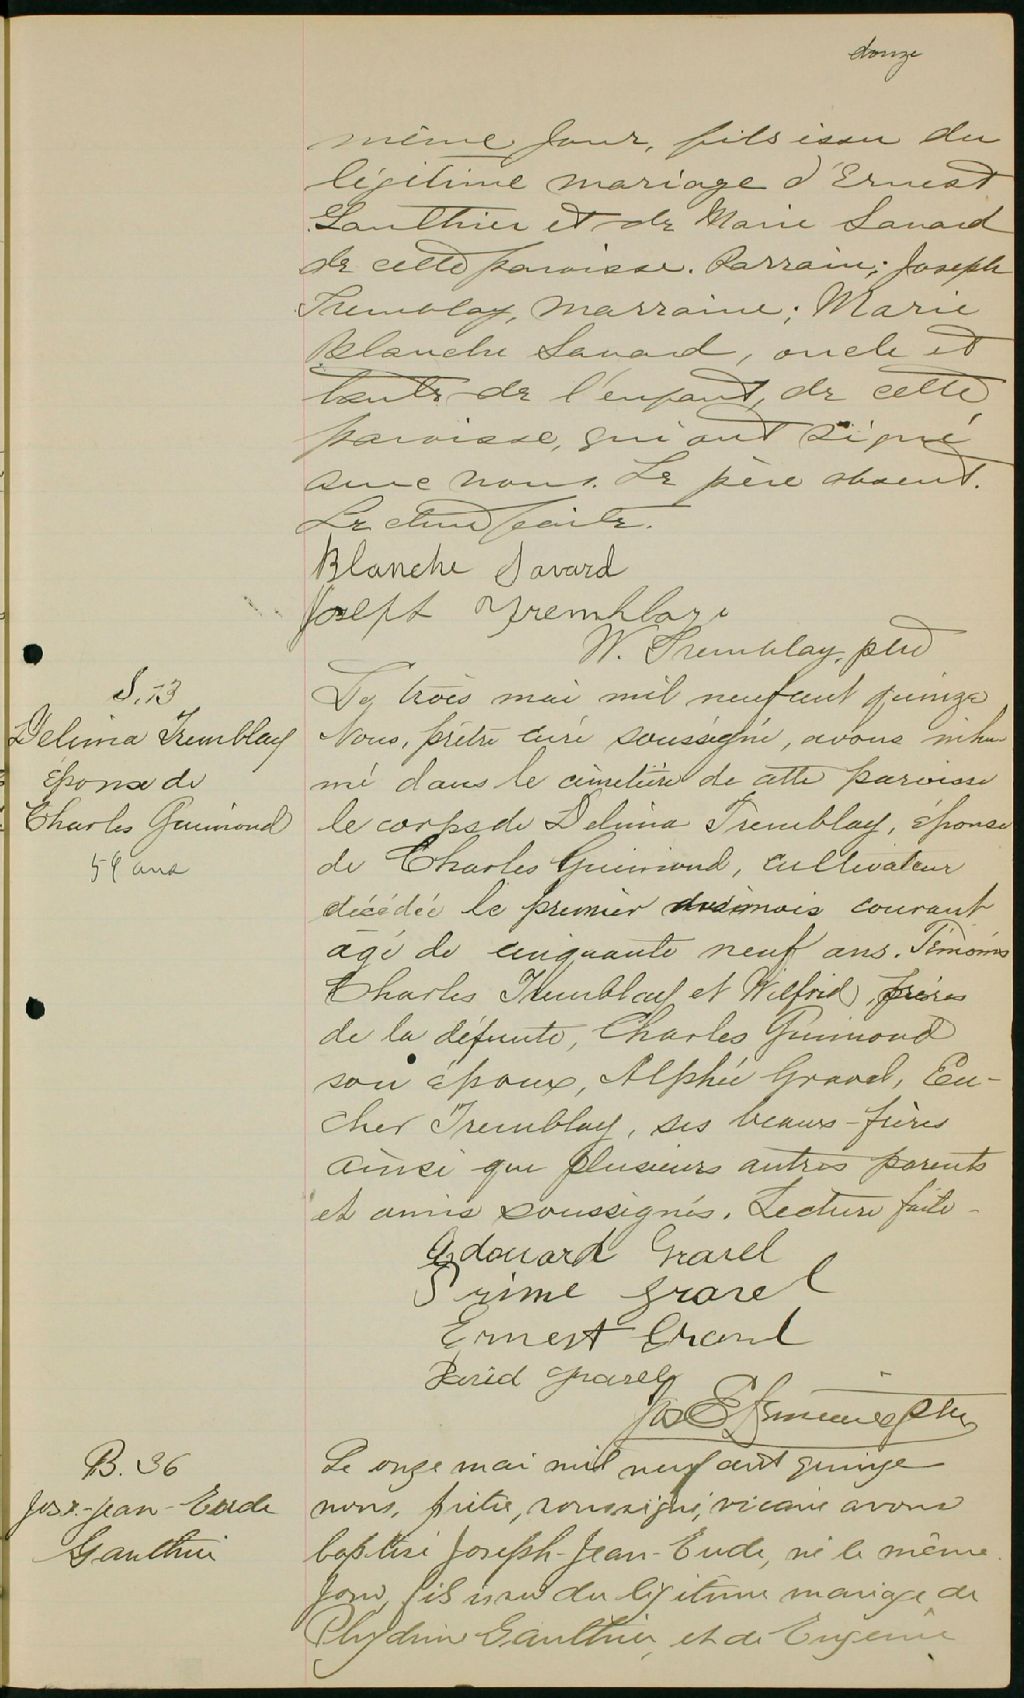 douze
même jour, fils issu du
légitime mariage d'Ernest
Gauthier et de Marie Savard
de cette paroisse. Parrain; Joseph
Tremblay, marraine; Marie
Blanche Savard, oncle et
tante de l'enfant, de cette
paroisse, qui ont signé
avec nous. Le père absent.
Lecture faite.
Blanche Savard
Joseph Tremblay
W. Tremblay, ptre
S. 13
Delima Tremblay
épouse de
Charles Guimond
59 ans
Le trois mai mil neuf cent quinze
Nous, prêtre curé soussigné, avons inhu
mé dans le cimetière de cette paroisse
le corps de Delima Tremblay, épouse
de Charles Guimond, cultivateur
décédée le premier du mois courant
âgé de cinquante neuf ans. Témoins
Charles Tremblay et Wilfrid, frères
de la défunte, Charles Guimond
son époux, Alphée Gravel, Eu-
cher Tremblay, ses beaux-frères
ainsi que plusieurs autres parents
et amis soussignés. Lecture faite -
Edouard Gravel
Prime Gravel
Ernest Gravel
David Gravel
Jos E ptre
B. 36
Jos.-Jean-Eude
Gauthier
Le onze mai mil neuf cent quinze
nous, prêtre, soussigné, vicaire avons
baptisé Joseph-Jean-Eude, né le même
jour, fils issu du légitime mariage de
Phydime Gauthier, et de Eugénie